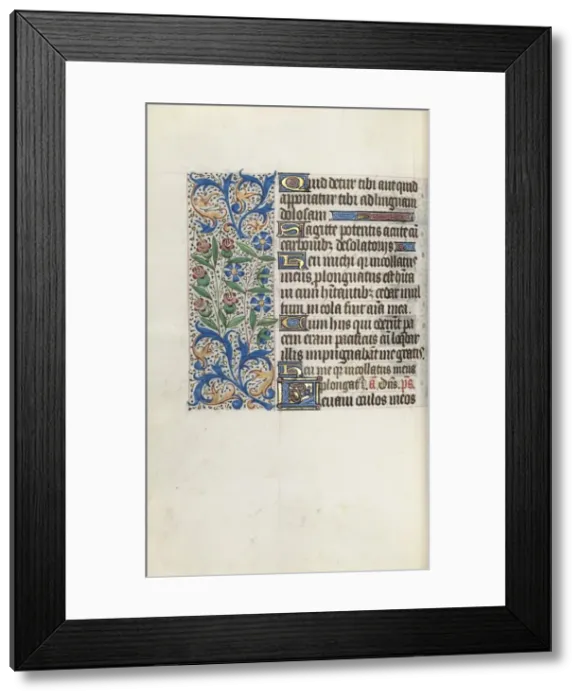 Quid detur tibi aut quid
apponatur tibi ad linguam
dolosam
Sagitte potentis acute cū
carbonibꝫ desolatoriis
Heu michi qꝛ incollatus
meus prolongatus est
cum hītantibꝫ cedar mul
tum incola fuit aīa mea
Cum hiis qui oderūt pa
cem eram pacificus cū loq̄bar
illis impugnabāt me gratis
Heu me qꝛ incollatus meus
prolongat⁹ a ps
Leuaui oculos meos